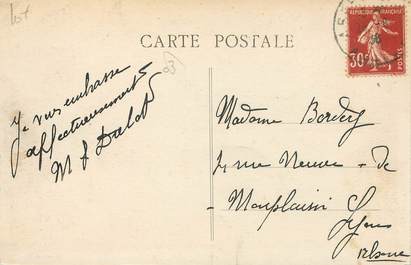 Lot
CARTE POSTALE
RÉPUBLIQUE FRANÇAISE
30c
03
Je vous embrasse
affectueusement
M J Dalot
Madame
4 rue Neuve - de
- Monplaisir
Lyon
Rhône